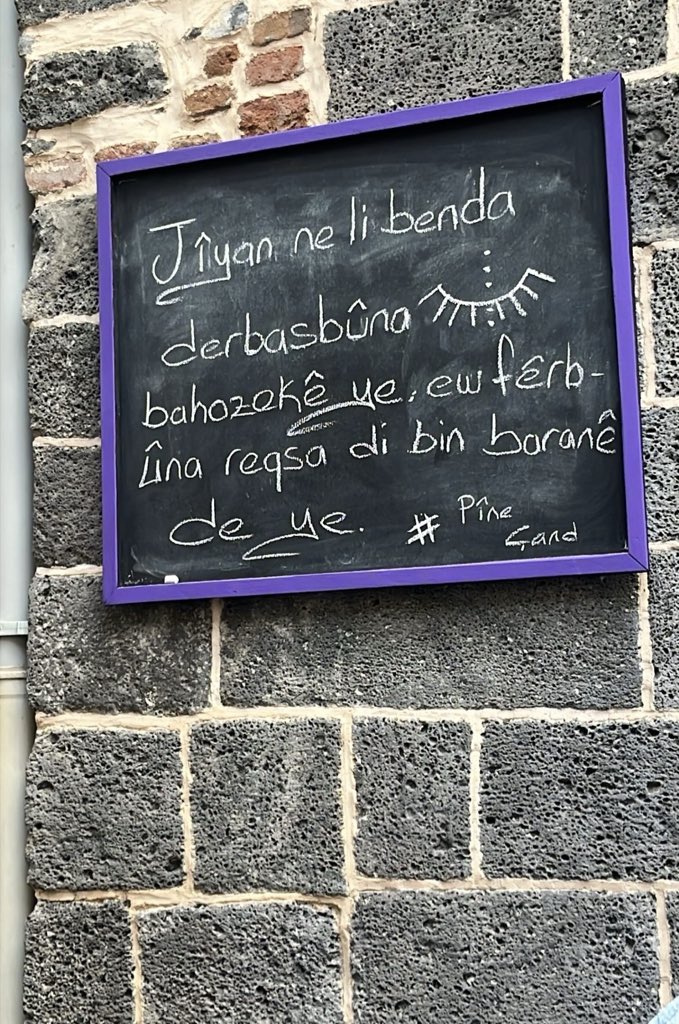 Jîyan ne li benda
derbasbûna
bahozekê ye, ew fêrb-
ûna reqsa di bin baranê
de ye.
# Pîne
Çand